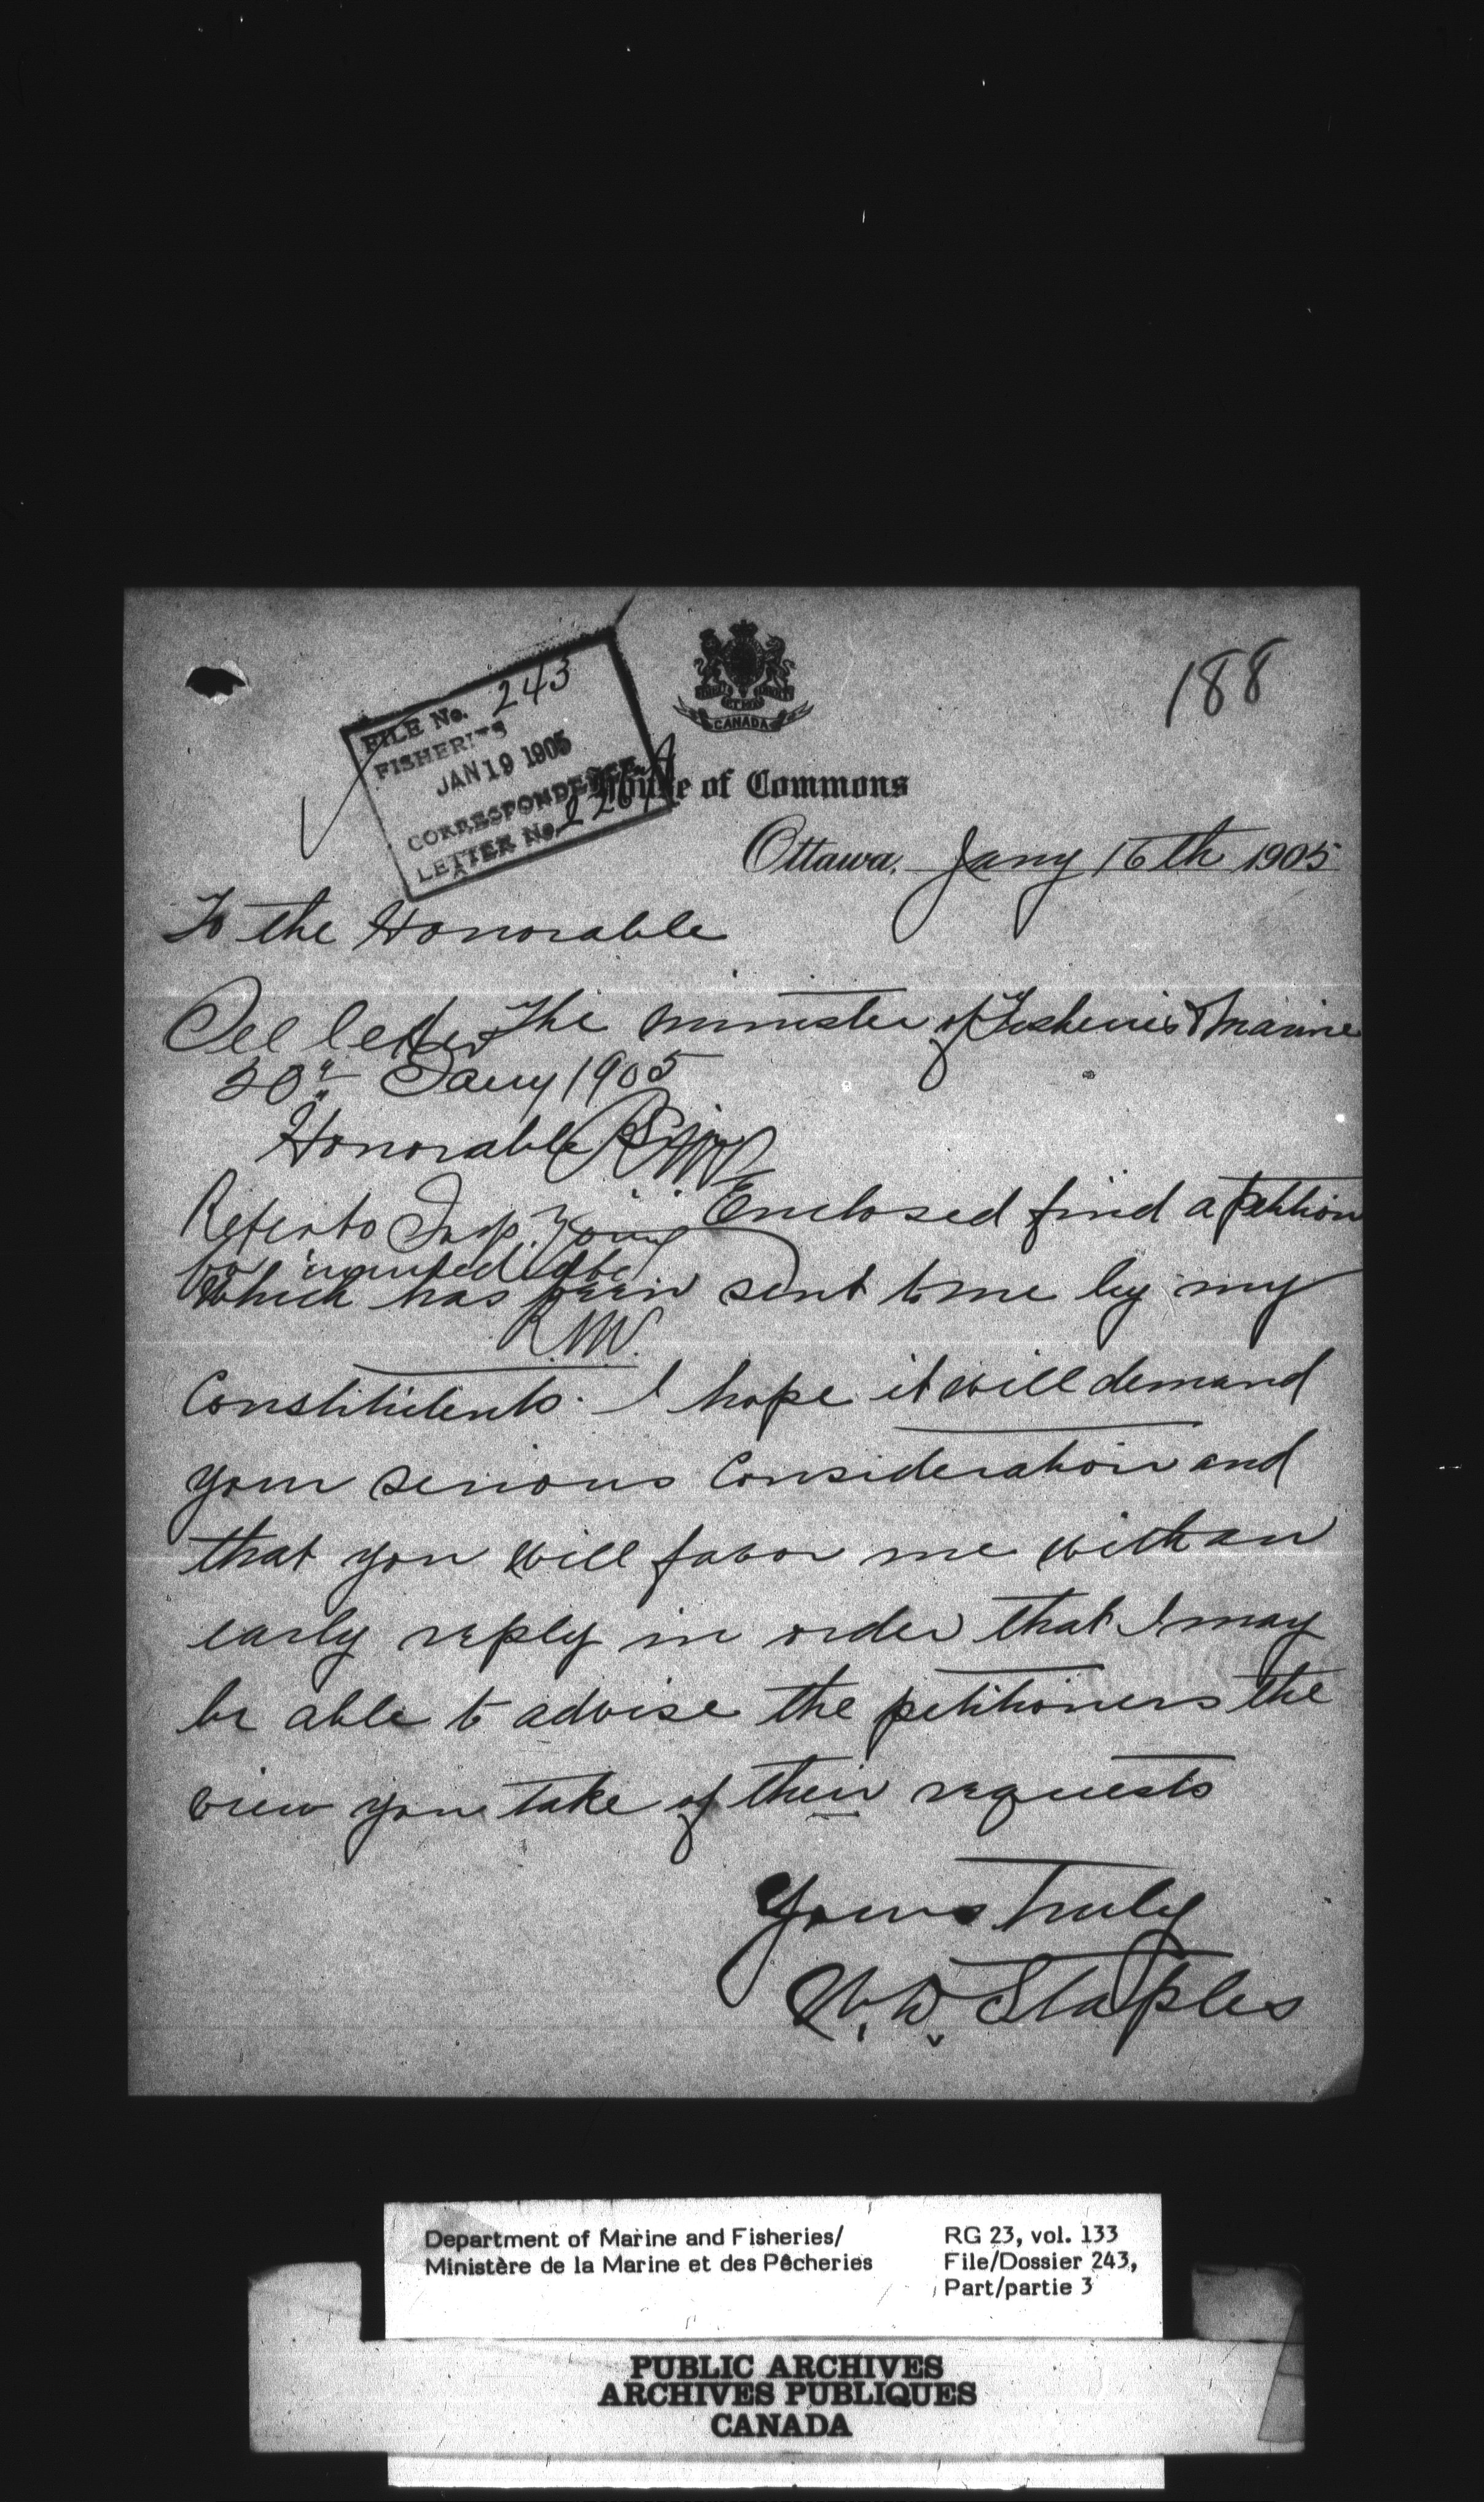 188
FILE No. 243
FISHERIES
JAN 19 1905
CORRESPONDENCE
LETTER No.
CANADA
House of Commons
Ottawa, Jany 16th 1905
To the Honorable
The minister of Fisheries & Marine
See letter
20th Jany 1905
Honorable Sir
Enclosed find a petition
Refer to Insp. Young
for immediate
R.N.V.
which has been sent to me by my
Constituents. I hope it will demand
your serious Consideration and
that you will favor me with an
early reply in order that I may
be able to advise the petitioners the
view you take of their requests
Yours Truly
W. D. Staples
Department of Marine and Fisheries/
Ministère de la Marine et des Pêcheries
RG 23, vol. 133
File/Dossier 243,
Part/partie 3
PUBLIC ARCHIVES
ARCHIVES PUBLIQUES
CANADA